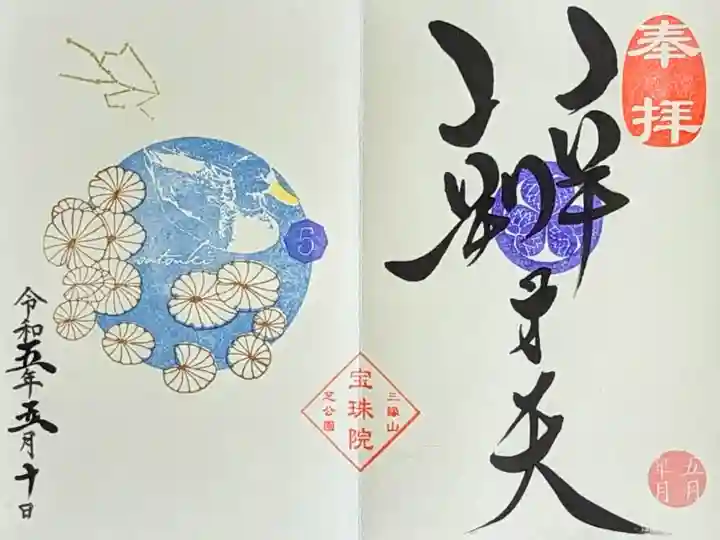 奉拝
辨才天
三縁山
宝珠院
芝公園
五月
5
令和五年五月十日